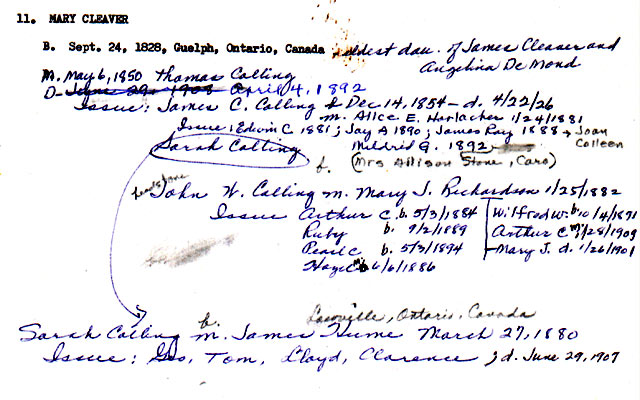 11. MARY CLEAVER
B. Sept. 24, 1828, Guelph, Ontario, Canada, oldest dau. of James Cleaver and
Angelina DeMond
M. May 6, 1850 Thomas Calling
D- June 29, 1908 April 4, 1892
Issue: James C. Calling b Dec 14, 1854 - d. 4/22/26
m. Alice E. Horlacher 1/24/1881
Issue: Edwin C. 1881; Jay A 1890; James Ray 1888 → Joan
Colleen
Sarah Calling Mildrid G. 1892
b. (Mrs Allison Stone, Caro)
John W. Calling m. Mary J. Richardson 1/25/1882
Issue Arthur C. b. 5/3/1884 Wilfred W. b. 10/4/1891
Ruby b. 9/2/1889 Arthur C m. 1/28/1909
Pearl C b. 5/3/1894 Mary J. d. 1/26/1901
Hazel b 6/6/1886
Ontario, Canada
Sarah Calling b. m. James Hume March 27, 1880
Issue: Geo, Tom, Lloyd, Clarence; d. June 29, 1907